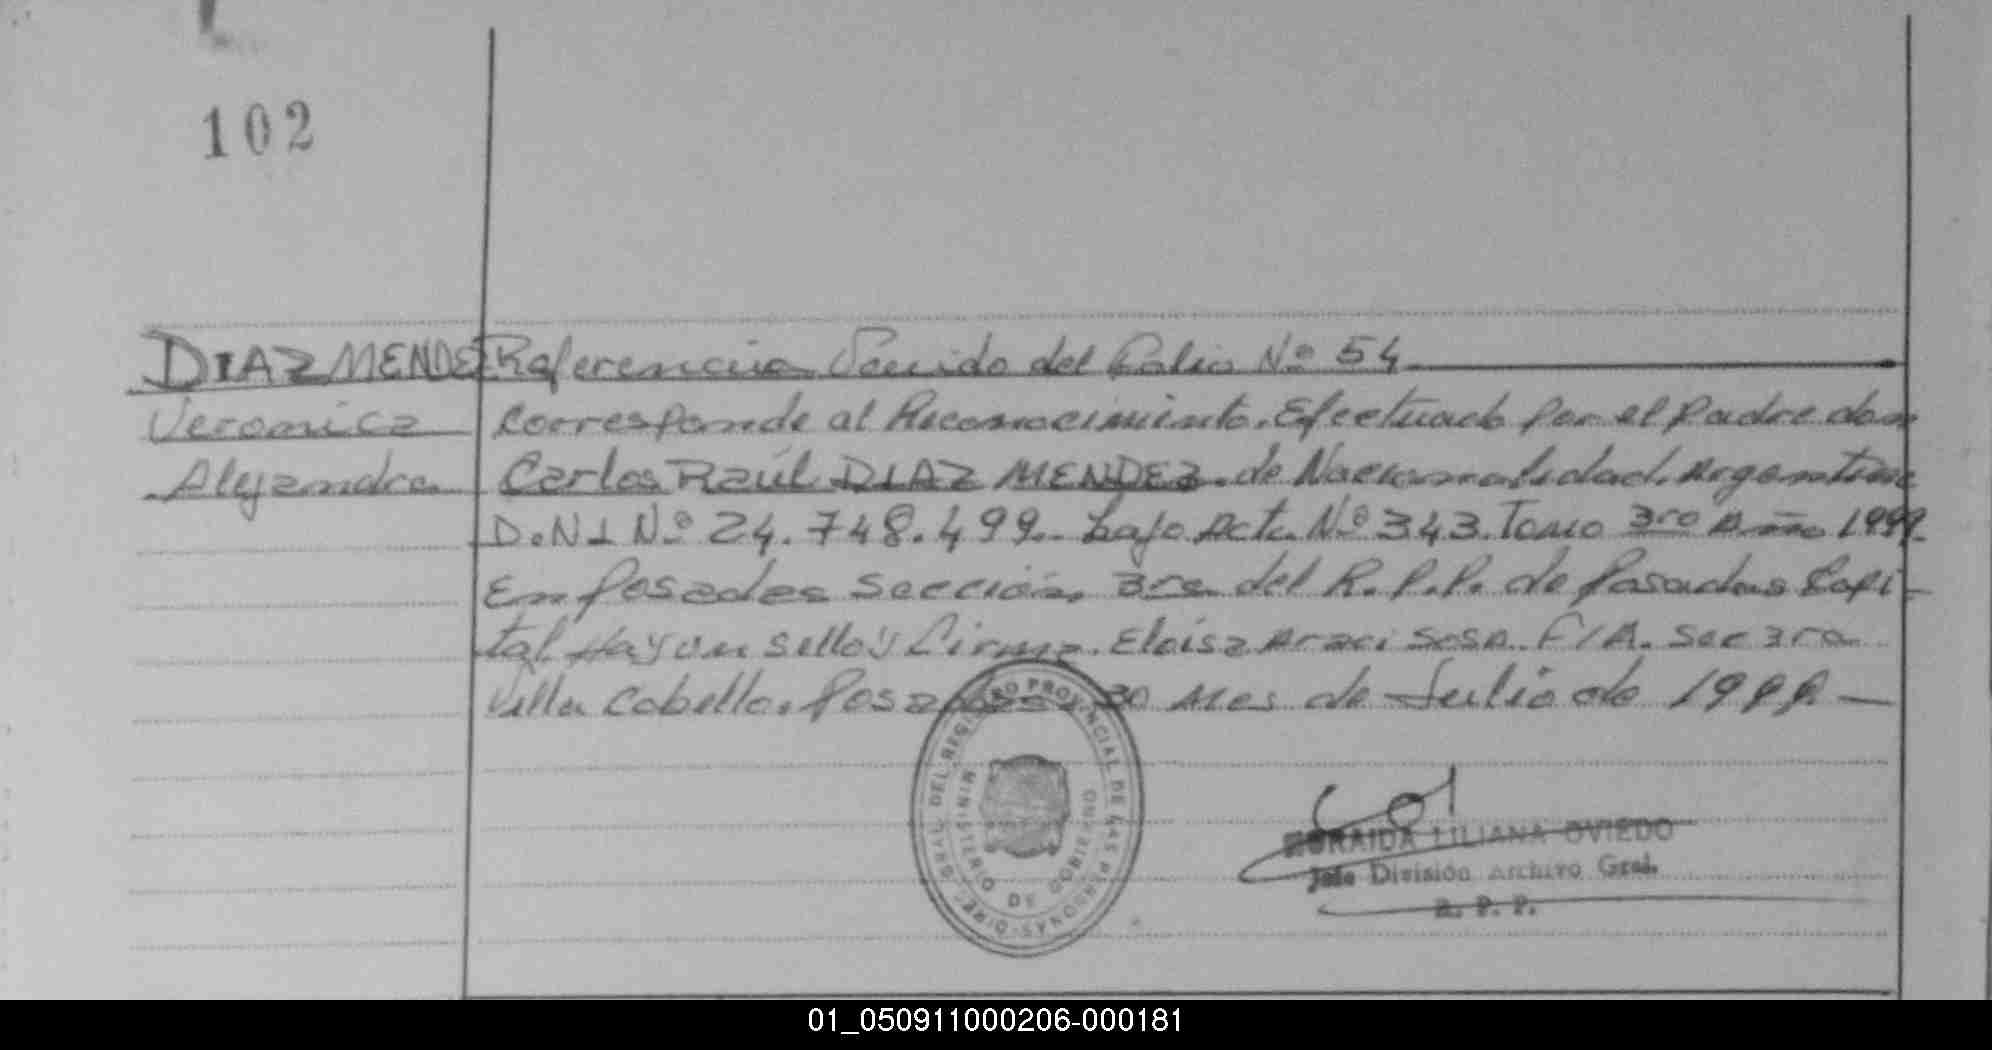 102
DIAZ MENDEZ Referencia Venido del Folio Nº 54
Veronica Corresponde al Reconocimiento. Efectuado por el padre don
Alejandra Carlos Raúl DIAZ MENDEZ. de Nacionalidad. Argentina
D.N.I Nº 24.748.499.- bajo Acta. Nº 343. Tomo 3ro Año 1999.
En posadas Sección 3ra del R.P.P. de Posadas Capi-
tal. Hay un sello y Firma. Eloisa Araci Sosa. F/A. Sec 3ra
Villa Cabello. Posadas 30 Mes de Julio de 1999 —
DIREC. GRAL. DEL REGISTRO PROVINCIAL DE LAS PERSONAS
MINISTERIO DE GOBIERNO
LILIANA OVIEDO
Jefe División Archivo Gral.
R. P. P.
01_050911000206-000181